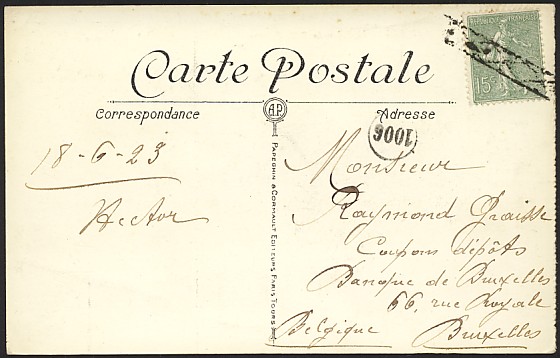 Carte Postale
REPUBLIQUE FRANÇAISE
15c
A.P.
Correspondance
Adresse
1006
18-6-23
Hector
Monsieur
Raymond Graisse
Coupons dépôts
Banque de Bruxelles
66, rue Royale
Belgique Bruxelles
PAPEGHIN & CORMAULT EDITEURS PARIS TOURS